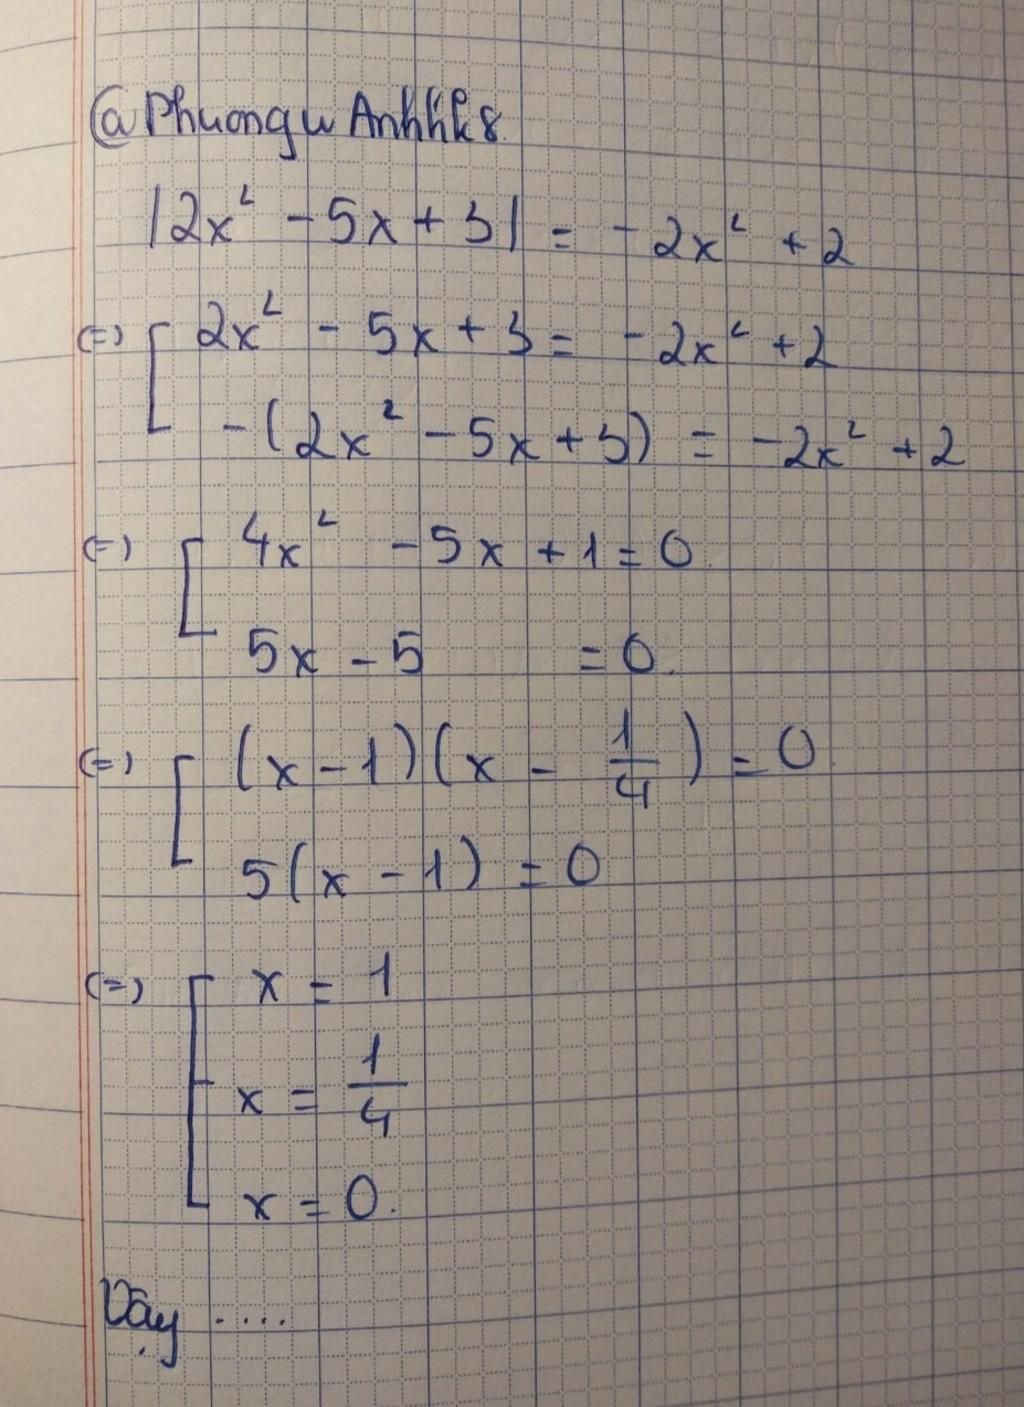 @Phuongw Anhhk8.
|2x² - 5x + 3| = -2x² + 2
(=) [ 2x² - 5x + 3 = -2x² + 2
-(2x² - 5x + 3) = -2x² + 2
(=) [ 4x² - 5x + 1 = 0
5x - 5 = 0.
(=) [ (x - 1)(x - 1/4) = 0.
5(x - 1) = 0
(=) [ x = 1
x = 1/4
x = 0.
Vậy ....